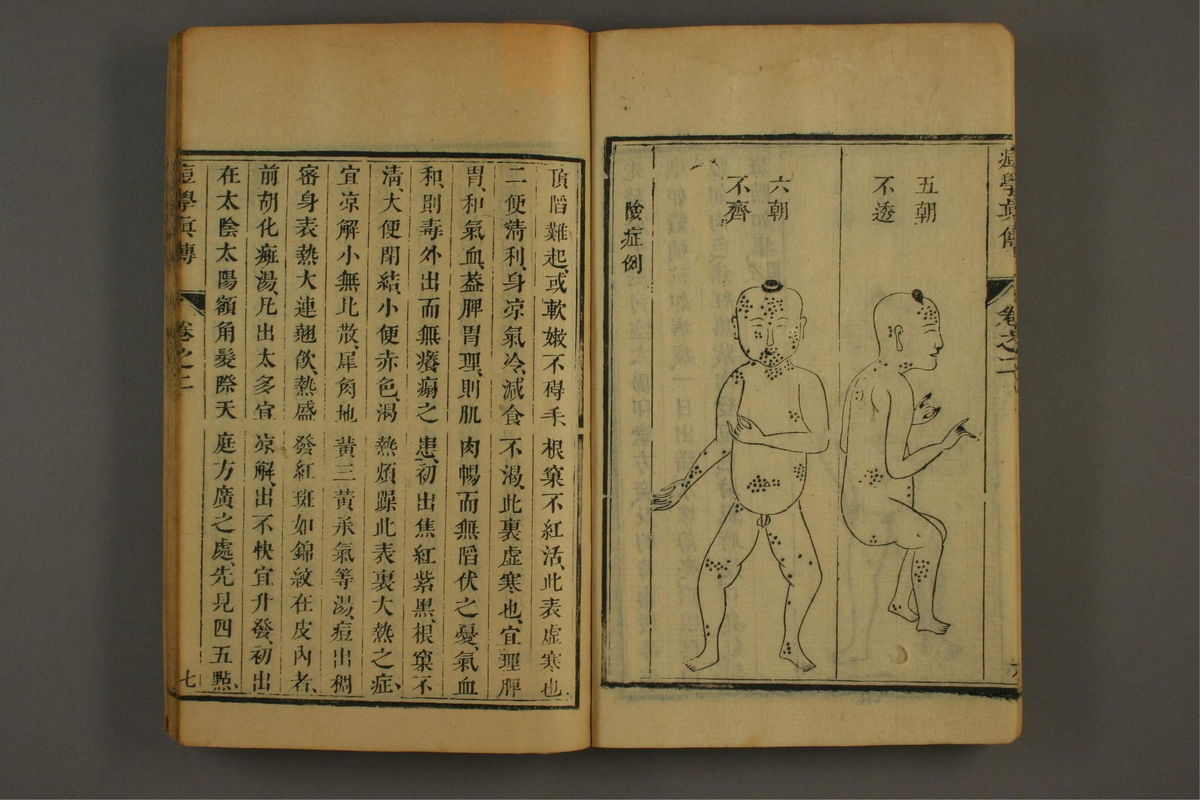 痘學真傳
卷之二
五朝
不透
六朝
不齊
險症例
頂陷難起、或軟嫩不碍手、根窠不紅活、此表虛寒也
二便清利、身凉氣冷、減食不渴、此裏虛寒也、宜理脾
胃、和氣血、葢脾胃理、則肌肉暢而無陷伏之憂、氣血
和、則毒外出而無癢塌之患、初出焦紅紫黑、根窠不
清、大便閉結、小便赤色、渴熱煩躁、此表裏大熱之症、
宜凉解、小無比散、犀角地黃三黃承氣等湯、痘出稠
密、身表熱、大連翹飲、熱盛發紅斑如錦紋在皮內者、
前胡化癍湯、凡出太多、宜凉解、出不快、宜升發、初出
在太陰太陽額角髮際天庭方廣之處、先見四五點、
痘學眞傳
卷之二
七